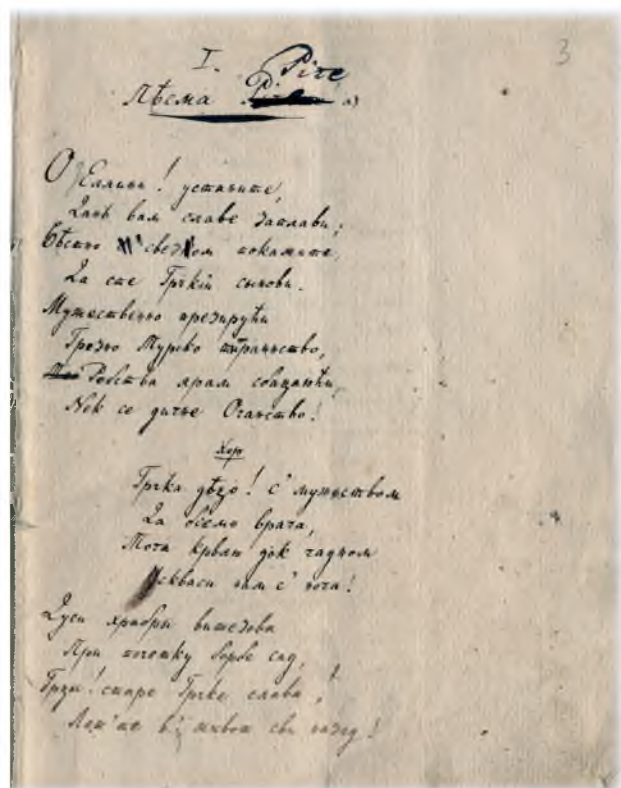 3
I. Риге
Пѣсма а)
О Еллини! устаните,
Данъ вам славе заплави;
Свезом покажите
Да сте Грчкiи сынови.
Мужественно презирући
Грозно Турско тiранство,
Робства ярам сбацаюћи,
Nек се дичне Отачство!
Хор
Грчка дѣцо! с' мужеством
Да біемо врага,
Тога крвлю док гадном
Искваси нам с' нога!
Дуси храбри витезова
При почетку борбе сад,
Грци! старе Грчке слава,
в' живот свы назад!